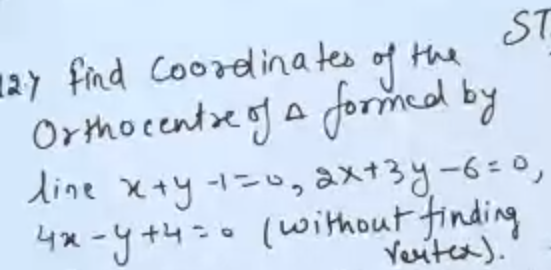 ST
12.) find Coordinates of the
Orthocentre of Δ formed by
line x+y-1=0, 2x+3y-6=0,
4x-y+4=0 (without finding
vertex).